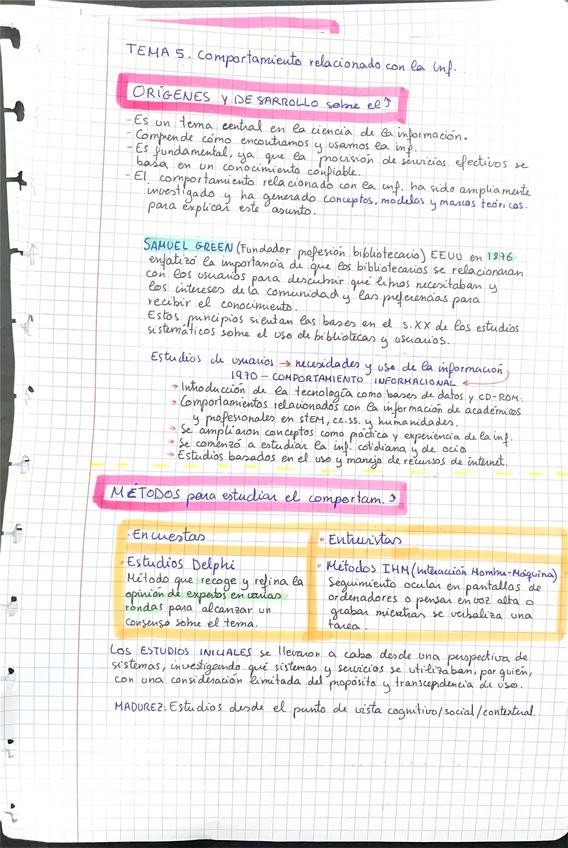 TEMA 5. Comportamiento relacionado con la inf.
ORÍGENES Y DESARROLLO sobre el ↑
- Es un tema central en la ciencia de la información.
- Comprende cómo encontramos y usamos la inf.
- Es fundamental, ya que la provisión de servicios efectivos se
basa en un conocimiento confiable.
- El comportamiento relacionado con la inf. ha sido ampliamente
investigado y ha generado conceptos, modelos y marcos teóricos.
para explicar este asunto.
SAMUEL GREEN (Fundador profesión bibliotecario) EEUU en 1876
enfatizó la importancia de que los bibliotecarios se relacionaran
con los usuarios para descubrir qué libros necesitaban y
los intereses de la comunidad y las preferencias para
recibir el conocimiento.
Estos principios sientan las bases en el s.XX de los estudios
sistemáticos sobre el uso de bibliotecas y usuarios.
Estudios de usuarios → necesidades y uso de la información
1970 - COMPORTAMIENTO INFORMACIONAL ←
→ Introducción de la tecnología como bases de datos y CD-ROM.
→ Comportamientos relacionados con la información de académicos
y profesionales en STEM, cc.ss. y humanidades.
→ Se ampliaron conceptos como práctica y experiencia de la inf.
→ Se comenzó a estudiar la inf. cotidiana y de ocio
→ Estudios basados en el uso y manejo de recursos de internet.
MÉTODOS para estudiar el comportam. ↑
· Encuestas
· Entrevistas
· Estudios Delphi
Método que recoge y refina la
opinión de expertos en varias
rondas para alcanzar un
consenso sobre el tema.
· Métodos IHM (Interacción Hombre-Máquina)
Seguimiento ocular en pantallas de
ordenadores o pensar en voz alta o
grabar mientras se verbaliza una
tarea.
Los ESTUDIOS INICIALES se llevaron a cabo desde una perspectiva de
sistemas, investigando qué sistemas y servicios se utilizaban, por quién,
con una consideración limitada del propósito y transcendencia de uso.
MADUREZ: Estudios desde el punto de vista cognitivo/social/contextual.